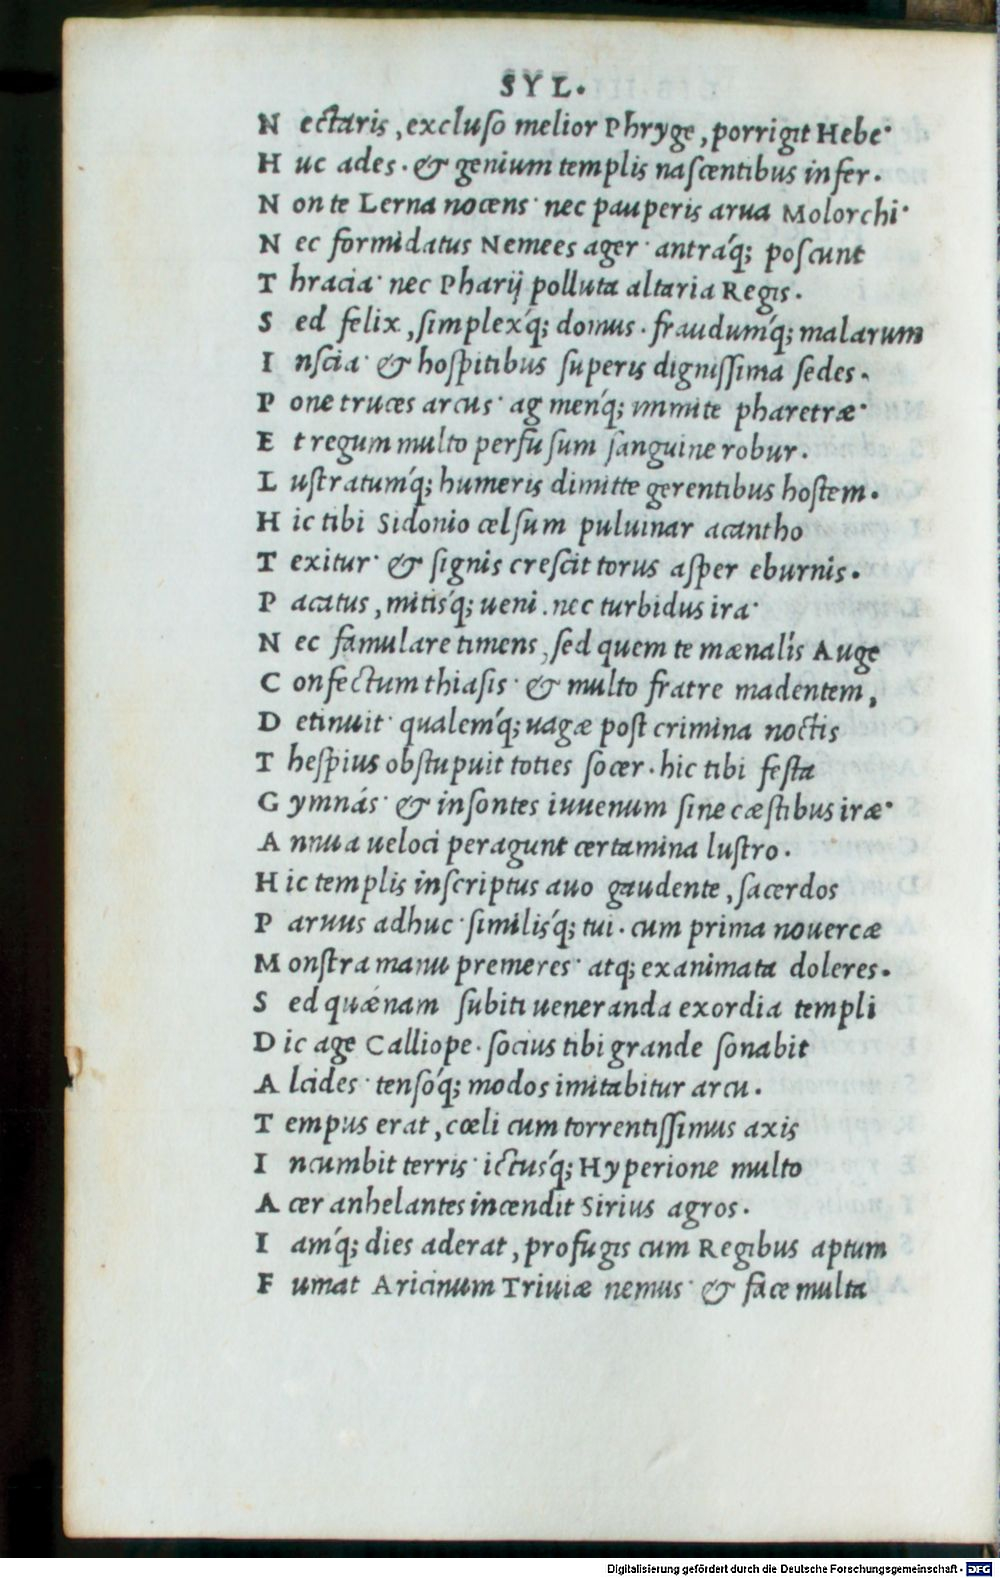 SYL.
N ectaris, excluso melior Phryge, porrigit Hebe·
H uc ades. & genium templis nascentibus infer.
N on te Lerna nocens· nec pauperis arua Molorchi·
N ec formidatus Nemees ager· antráq; poscunt
T hracia· nec Pharij polluta altaria Regis.
S ed felix, simplex'q; domus. fraudum'q; malarum
I nscia· & hospitibus superis dignissima sedes.
P one truces arcus· agmen'q; immite pharetræ·
E t regum multo perfusum sanguine robur.
L ustratum'q; humeris dimitte gerentibus hostem.
H ic tibi Sidonio celsum puluinar acantho
T exitur· & signis crescit torus asper eburnis.
P acatus, mitis'q; ueni. nec turbidus ira·
N ec famulare timens, sed quem te mænalis Auge
C onfectum thiasis· & multo fratre madentem,
D etinuit· qualem'q; uagæ post crimina noctis
T hespius obstupuit toties socer. hic tibi festa
G ymnás· & insontes iuuenum sine cæstibus iræ·
A nnua ueloci peragunt certamina lustro.
H ic templis inscriptus auo gaudente, sacerdos
P aruus adhuc· similis'q; tui. cum prima nouercæ
M onstra manu premeres· atq; exanimata doleres.
S ed quǽnam subiti ueneranda exordia templi
D ic age Calliope. socius tibi grande sonabit
A lcides· tensó'q; modos imitabitur arcu.
T empus erat, cœli cum torrentissimus axis
I ncumbit terris· ictus'q; Hyperione multo
A cer anhelantes incendit Sirius agros.
I am'q; dies aderat, profugis cum Regibus aptum
F umat Aricinum Triuiæ nemus· & face multa
Digitalisierung gefördert durch die Deutsche Forschungsgemeinschaft - DFG